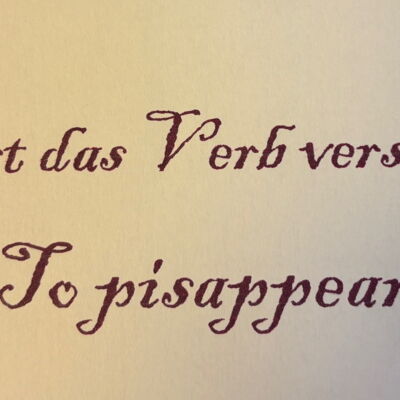 t das Verb vers
To pisappear